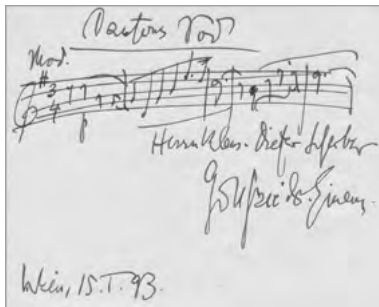 Dantons Tod
Mod.
3
4
p
Herrn Klaus-Dieter
Gottfried v. Einem
Wien, 15.I.93.